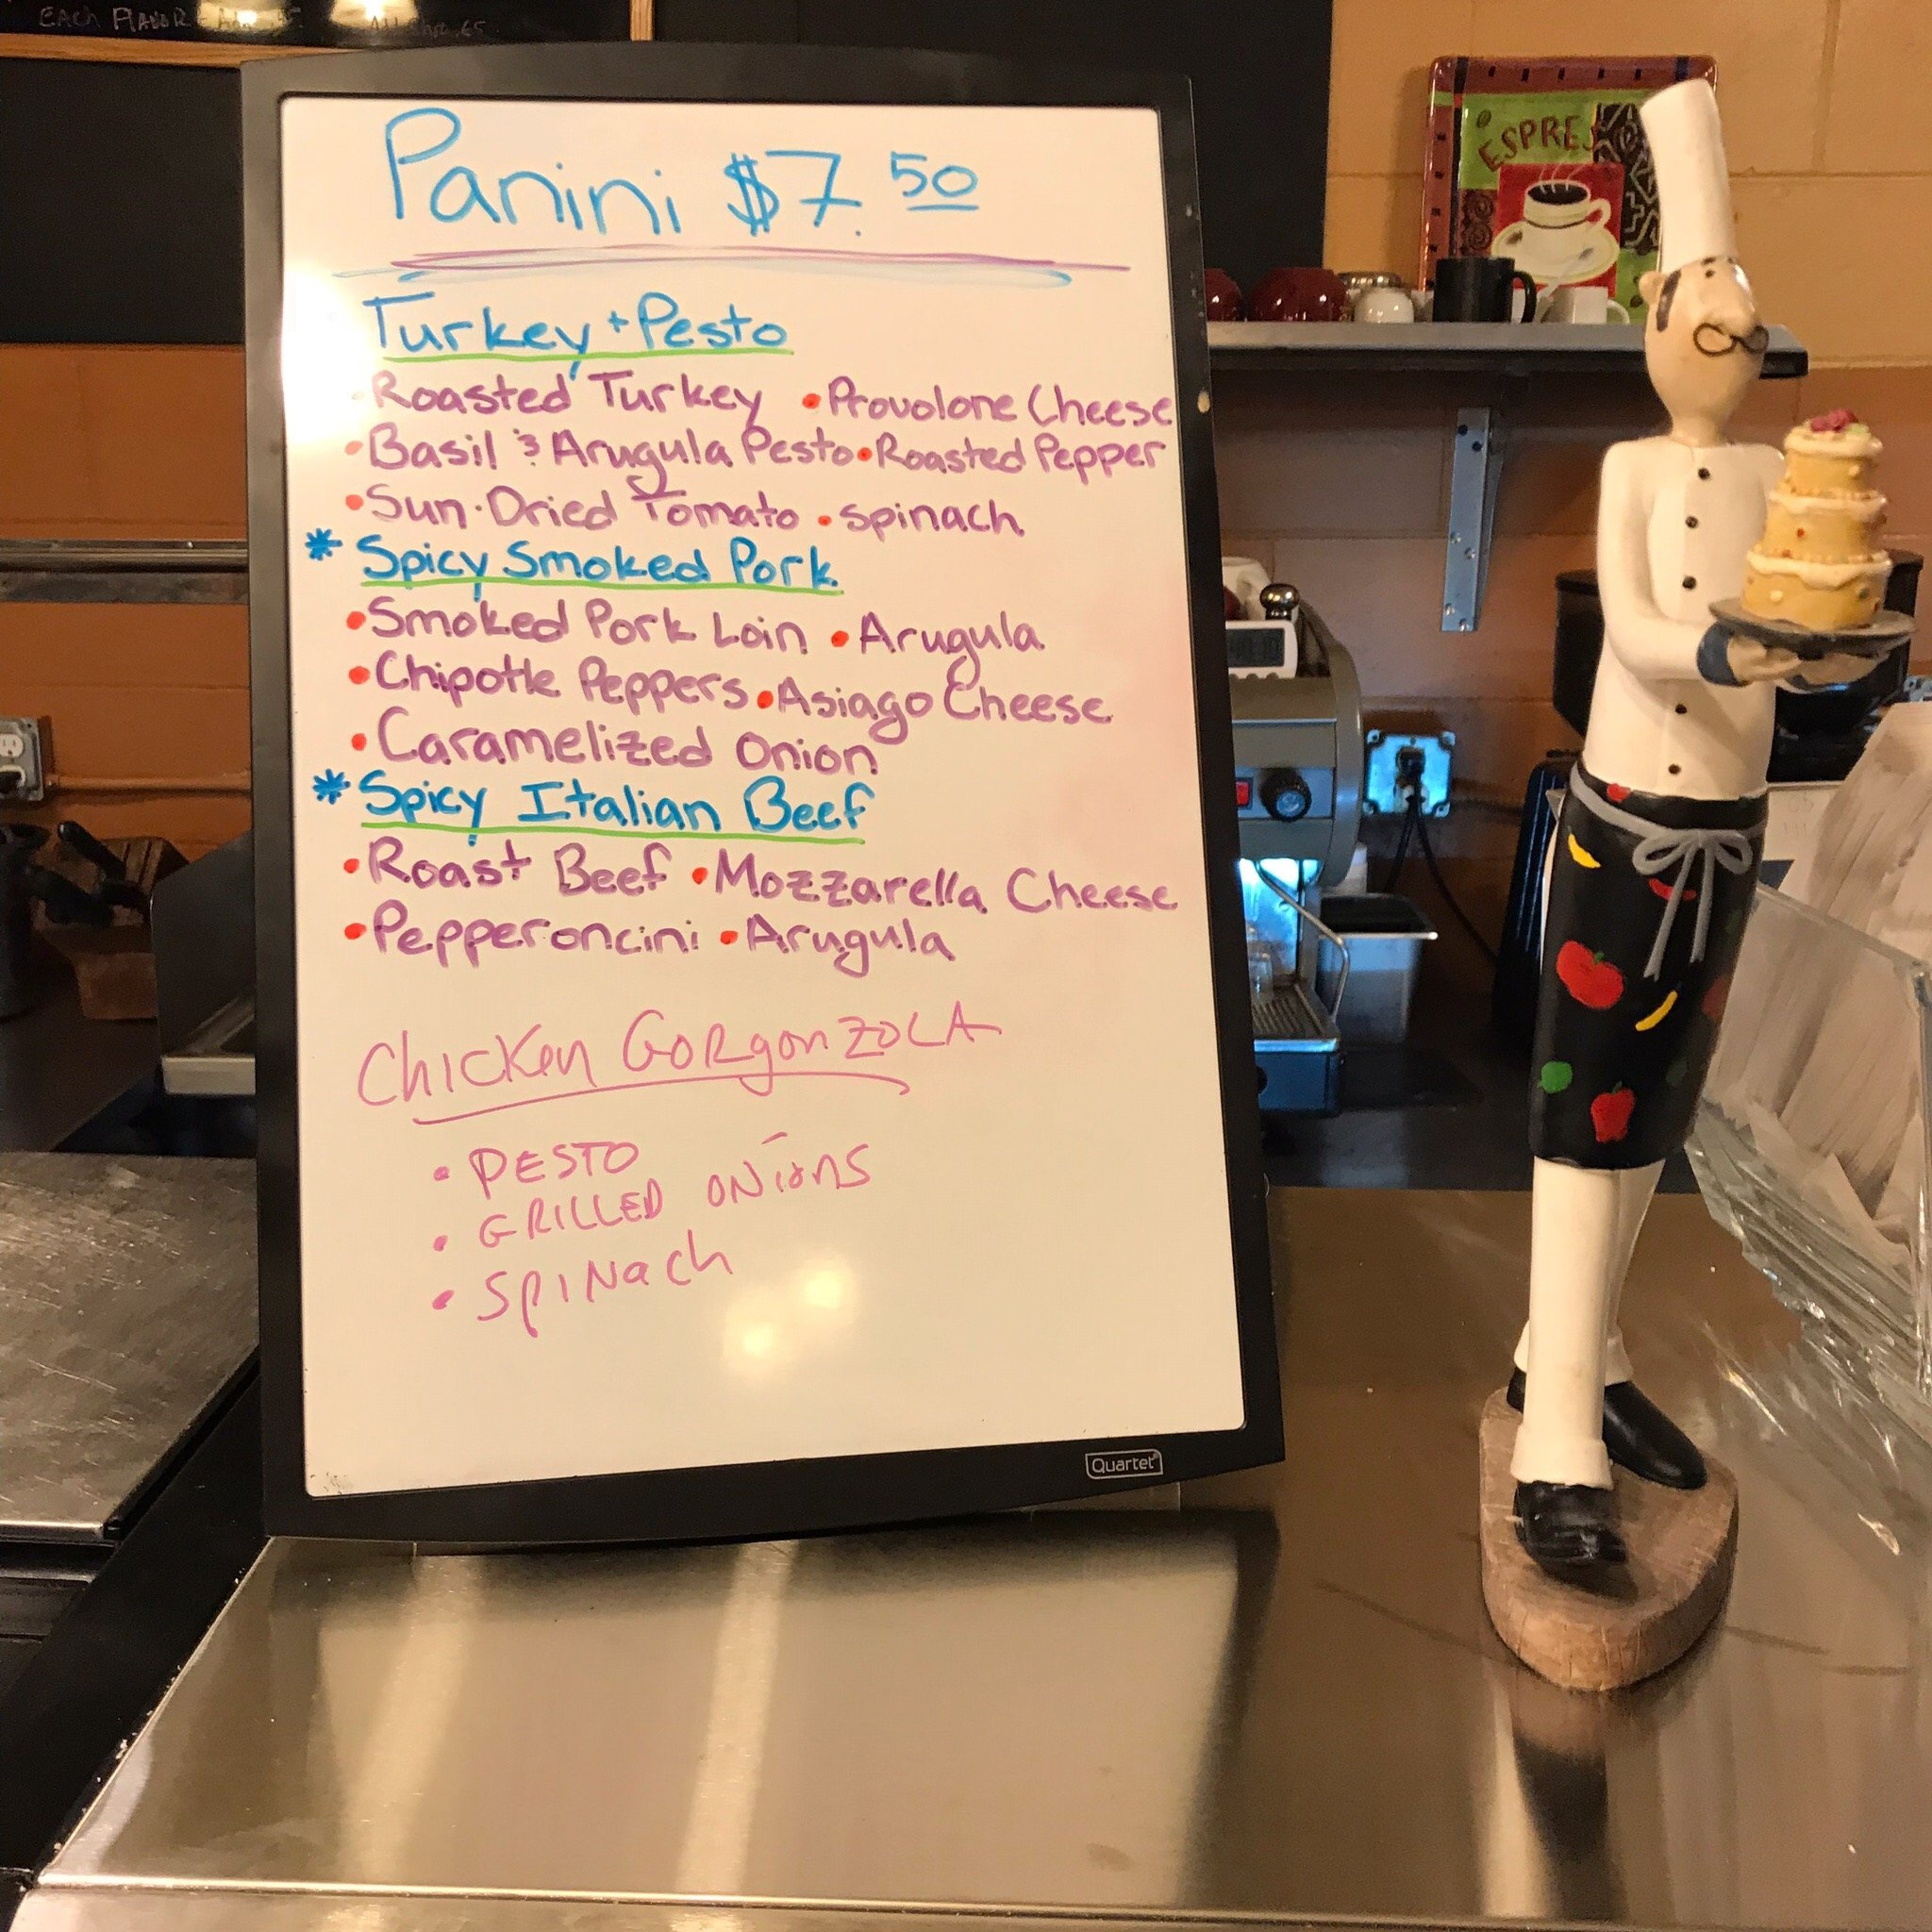 EACH FLAVOR
Panini $7.50
Turkey + Pesto
• Roasted Turkey • Provolone Cheese
• Basil & Arugula Pesto • Roasted Pepper
• Sun-Dried Tomato • spinach
* Spicy Smoked Pork
• Smoked Pork Loin • Arugula
• Chipotle Peppers • Asiago Cheese
• Caramelized Onion
* Spicy Italian Beef
• Roast Beef • Mozzarella Cheese
• Pepperoncini • Arugula
Chicken GORgonZOLA
• PESTO
• GRILLED ONiONS
• SPINach
Quartet
ESPRES